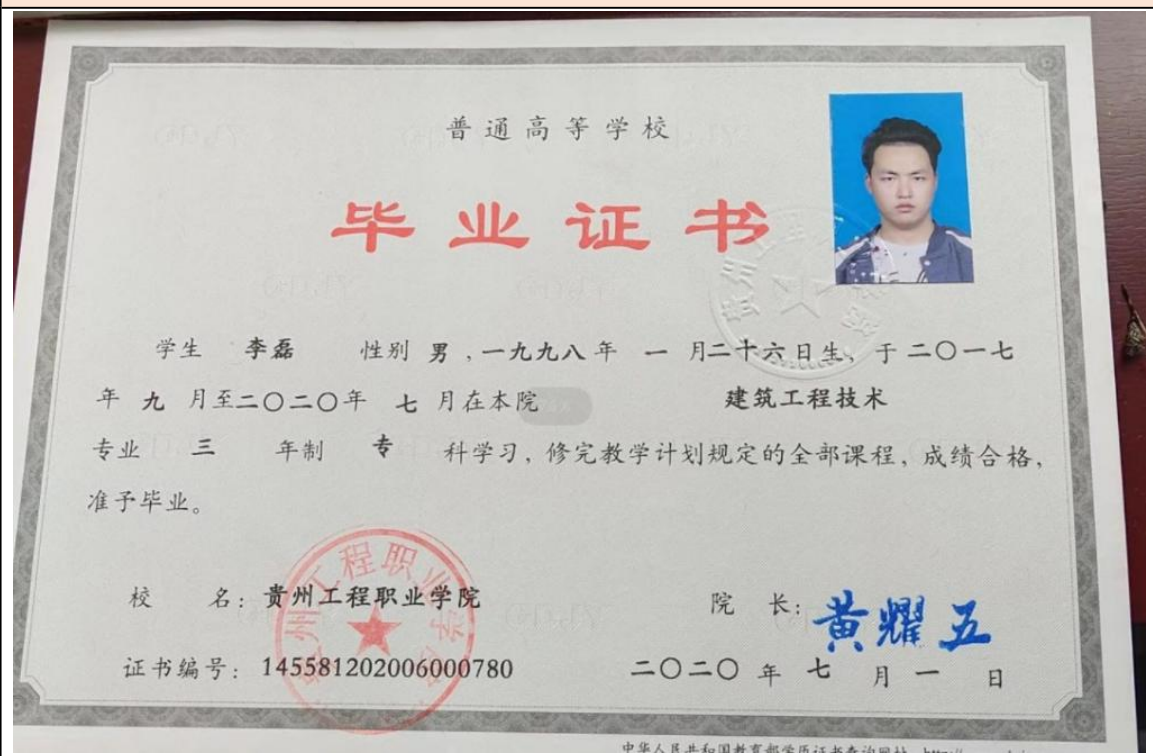 普通高等学校
毕业证书
学生 李磊 性别 男 ,一九九八年 一 月二十六日生, 于二〇一七
年 九 月至二〇二〇年 七 月在本院 建筑工程技术
专业 三 年制 专 科学习, 修完教学计划规定的全部课程, 成绩合格,
准予毕业。
校 名: 贵州工程职业学院
院 长: 黄耀五
证书编号: 145581202006000780
二〇二〇 年 七 月 一 日
贵州工程职业学院
中华人民共和国教育部学历证书查询网址